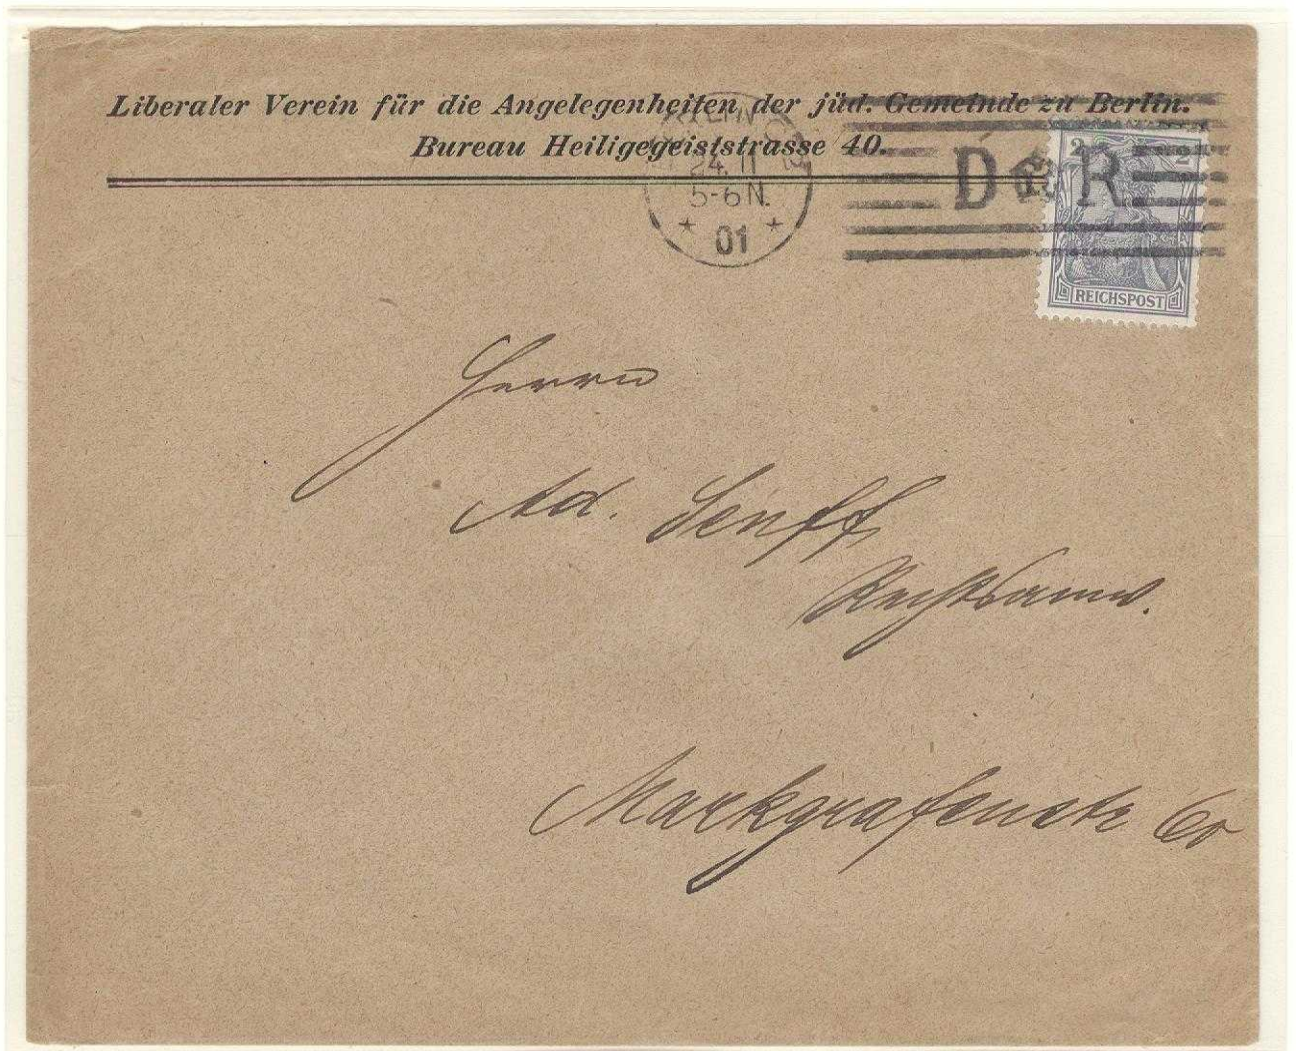 Liberaler Verein für die Angelegenheiten der jüd. Gemeinde zu Berlin.
Bureau Heiligegeiststrasse 40.
24.11
5-6N.
* 01 *
D R
2 2
REICHSPOST
Herrn
Ad. Senff
Rechtsanw.
Markgrafenstr 60